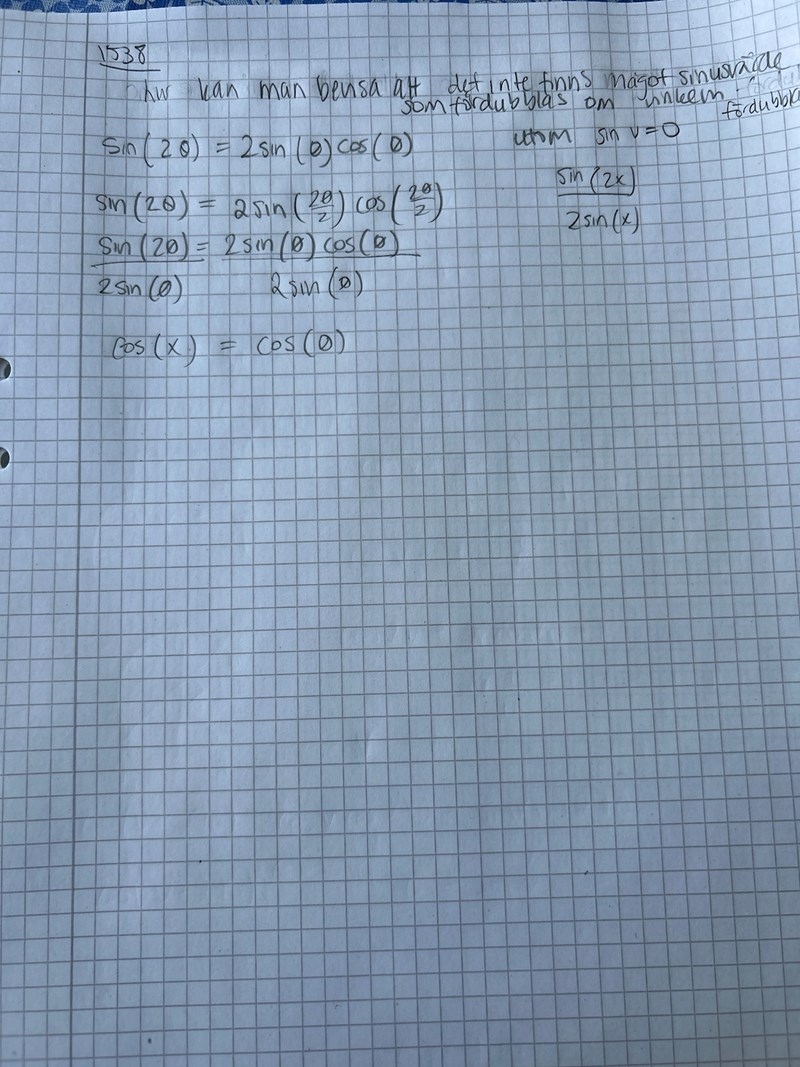 1538
hur kan man bevisa att det inte finns något sinusvärde
som fördubblas om vinkeln
fördubbla
utom sin v = 0
sin(2θ) = 2sin(θ)cos(θ)
sin(2x)
2sin(x)
sin(2θ) = 2sin(2θ/2)cos(2θ/2)
sin(2θ) = 2sin(θ)cos(θ)
2sin(θ) 2sin(θ)
cos(x) = cos(θ)